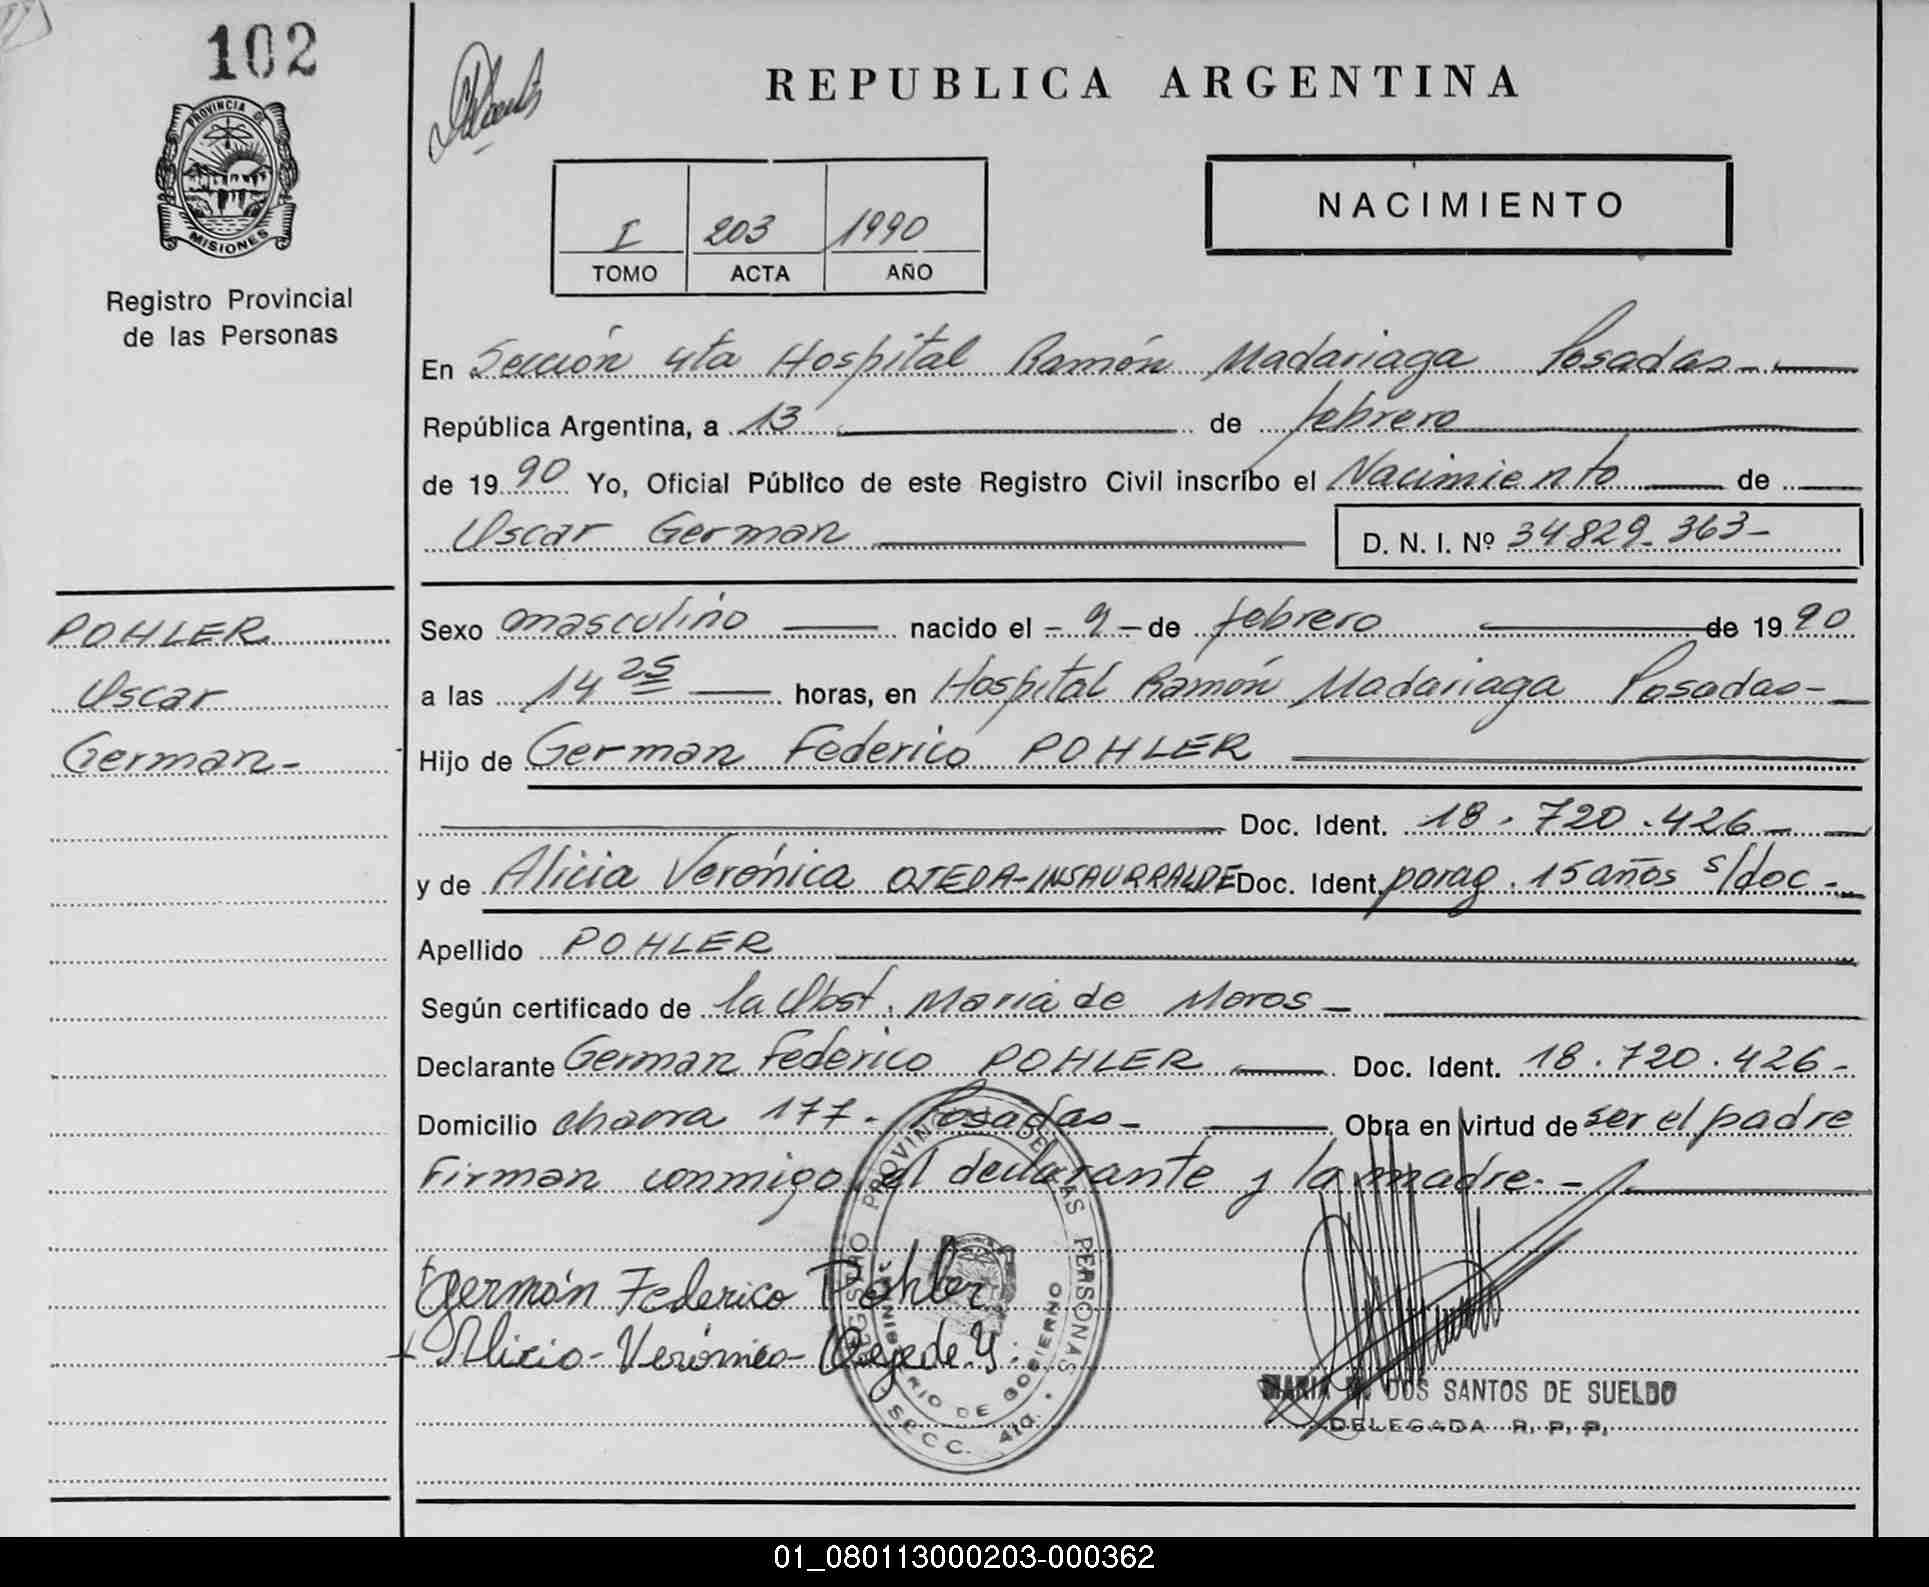 102
PROVINCIA DE
MISIONES
Registro Provincial
de las Personas
REPUBLICA ARGENTINA
NACIMIENTO
I 203 1990
TOMO ACTA AÑO
En Sección 4ta Hospital Ramón Madariaga Posadas-
República Argentina, a 13 de febrero
de 1990 Yo, Oficial Público de este Registro Civil inscribo el Nacimiento de
Oscar German D. N. I. Nº 34829.363-
POHLER
Oscar
German-
Sexo masculino nacido el - 9 - de febrero de 1990
a las 14 25 horas, en Hospital Ramón Madariaga Posadas-
Hijo de German Federico POHLER
Doc. Ident. 18.720.426-
y de Alicia Verónica OJEDA-INSAURRALDE Doc. Ident. parag. 15 años s/doc-
Apellido POHLER
Según certificado de la Obst. Maria de Moros-
Declarante German Federico POHLER Doc. Ident. 18.720.426-
Domicilio chacra 177- Posadas- Obra en virtud de ser el padre
Firman conmigo el declarante y la madre.-
Germán Federico Pohler
Alicia-Verónica-Ojeda Y.
REGISTRO PROVINCIAL DE LAS PERSONAS
MINISTERIO DE GOBIERNO
SECC. 4ta.
MARIA DOS SANTOS DE SUELDO
DELEGADA R. P. P.
01_080113000203-000362